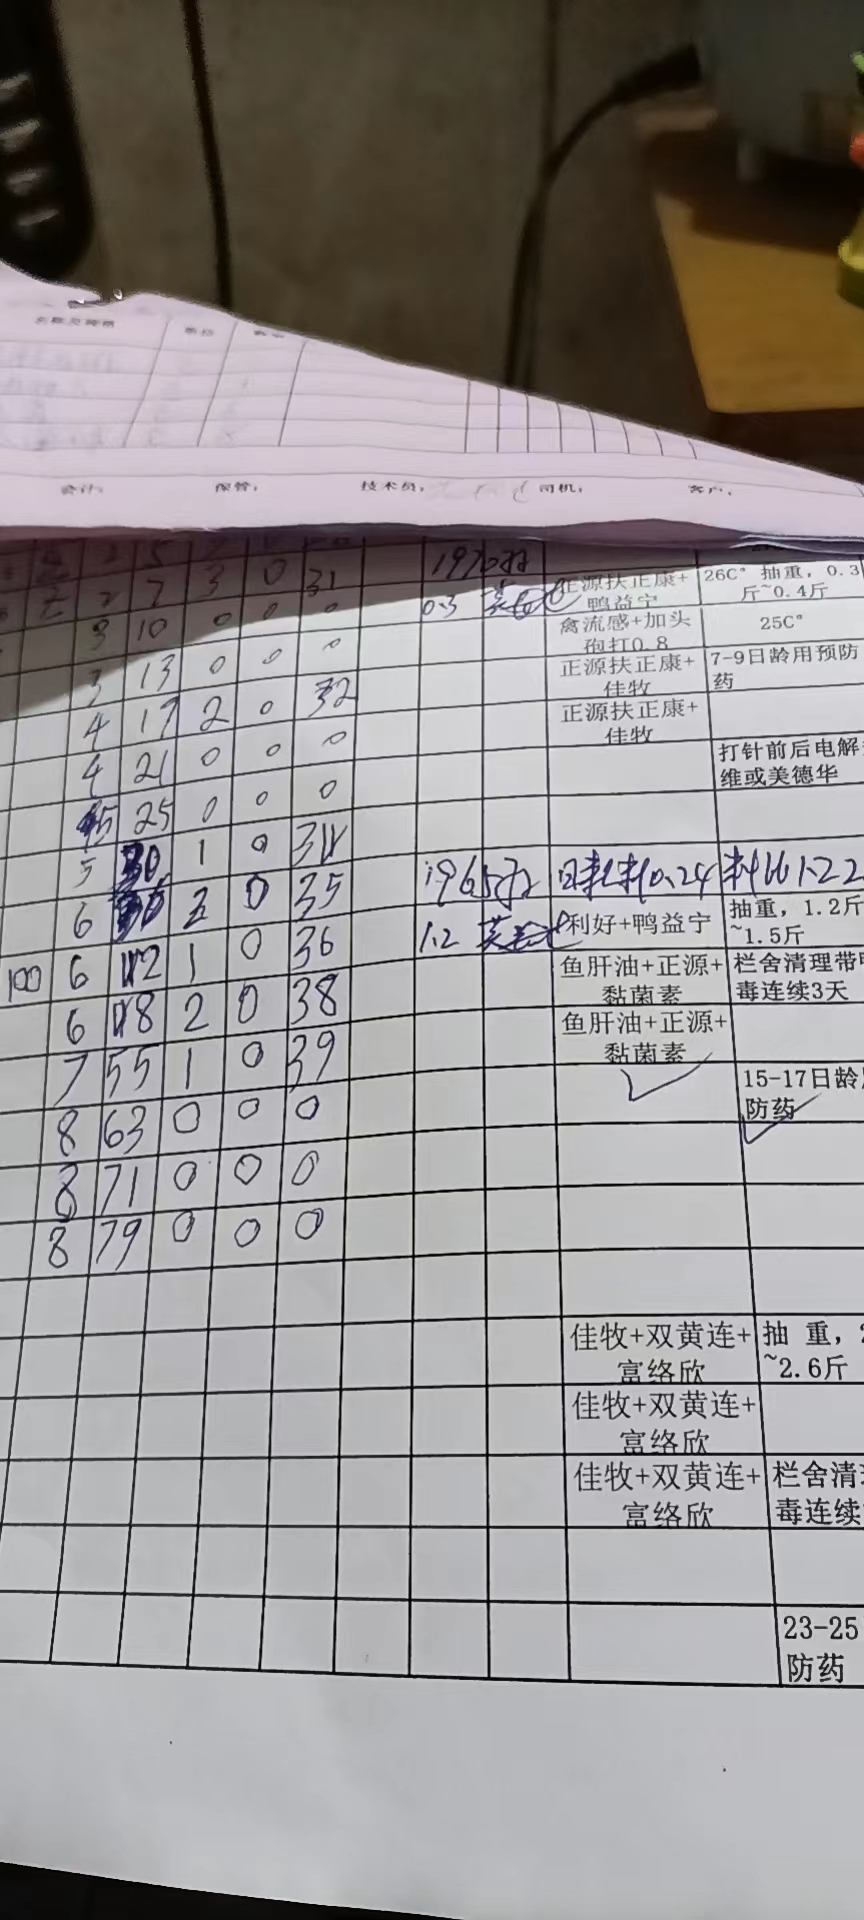 名称及规格 单位
会计: 保管: 技术员: 司机: 客户:
2 5
2 7 3 0 31 0.3 正源扶正康+鸭益宁 26C° 抽重, 0.3斤~0.4斤
3 10 0 0 0 禽流感+加头孢打0.8 25C°
3 13 0 0 0 正源扶正康+佳牧 7-9日龄用预防药
4 17 2 0 32 正源扶正康+佳牧
4 21 0 0 0 打针前后电解 维或美德华
5 25 0 0 0
5 30 1 0 34
6 0 35 1965 日耗料0.24 料比1.22
1.2 利好+鸭益宁 抽重, 1.2斤~1.5斤
100 6 42 1 0 36 鱼肝油+正源+黏菌素 栏舍清理带 毒连续3天
6 48 2 0 38 鱼肝油+正源+黏菌素
7 55 1 0 39 15-17日龄 防药
8 63 0 0 0
8 71 0 0 0
8 79 0 0 0
佳牧+双黄连+富络欣 抽 重, ~2.6斤
佳牧+双黄连+富络欣
佳牧+双黄连+富络欣 栏舍清 毒连续
23-25
防药